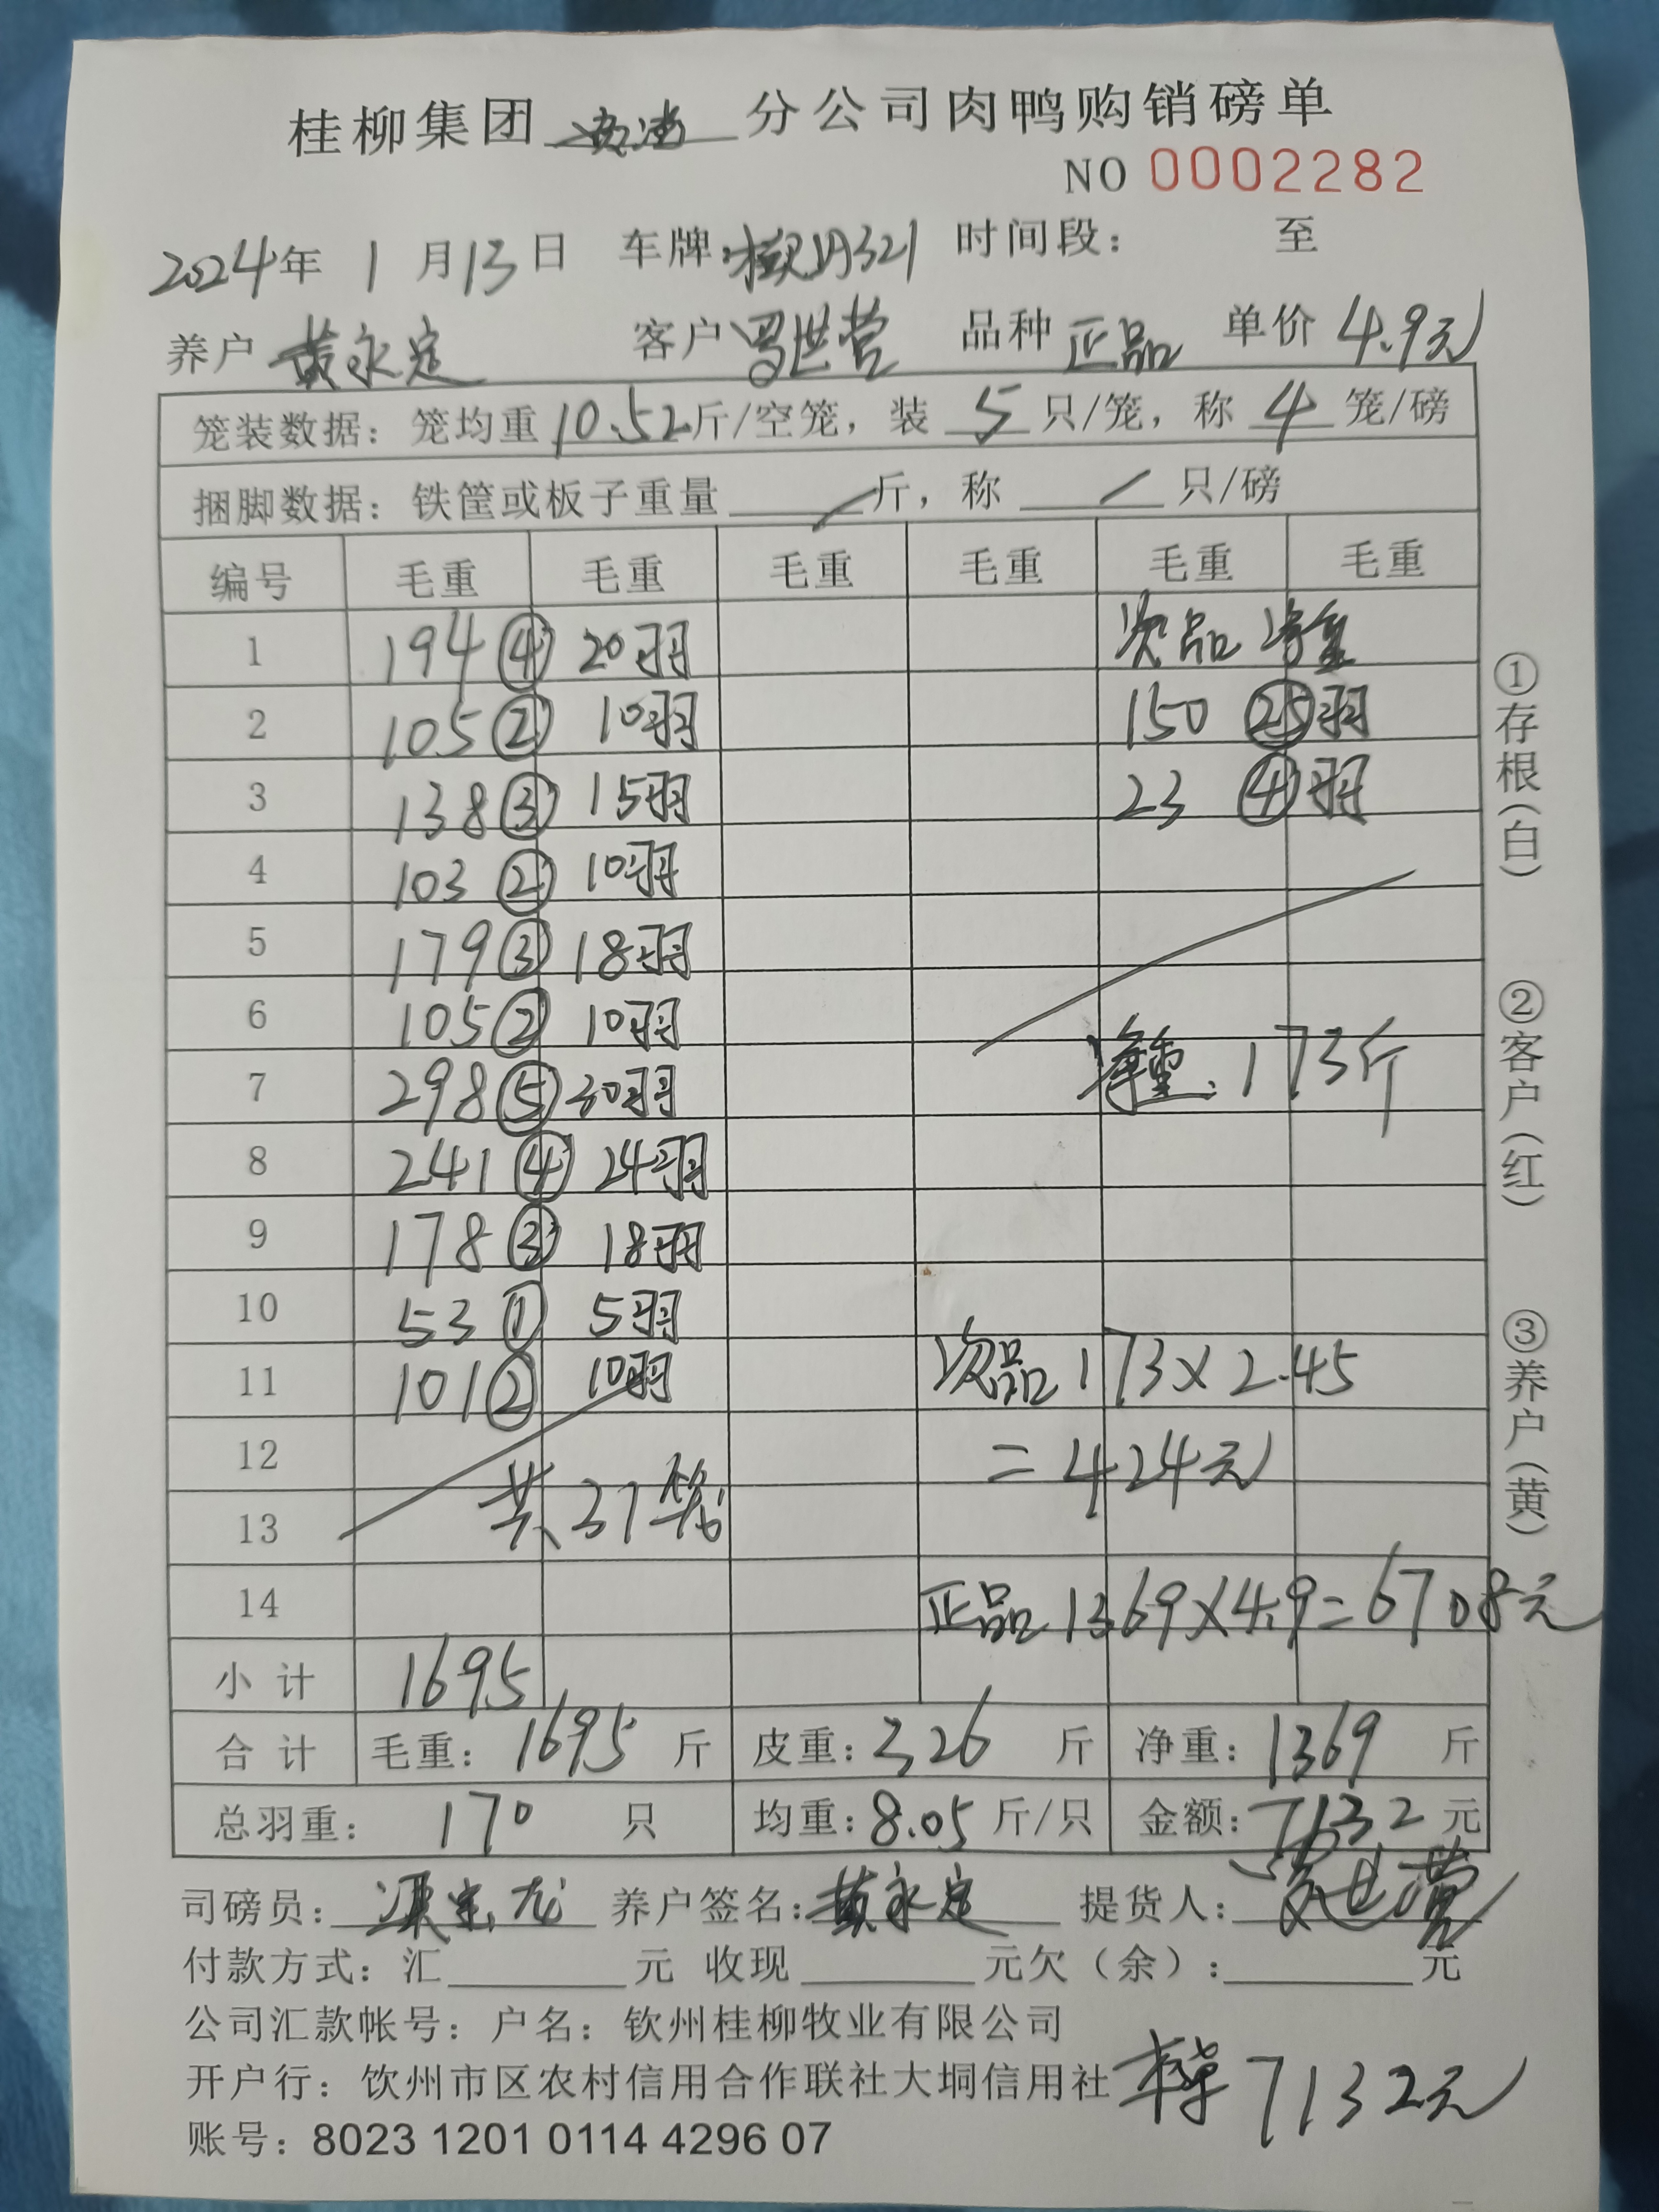 桂柳集团 分公司肉鸭购销磅单
NO 0002282
2024年 1 月 13 日 车牌: 321 时间段: 至
养户 黄永定 客户 罗世营 品种 正品 单价 4.9元
笼装数据: 笼均重 10.52 斤/空笼, 装 5 只/笼, 称 4 笼/磅
捆脚数据: 铁筐或板子重量 / 斤, 称 / 只/磅
编号 毛重 毛重 毛重 毛重 毛重 毛重
1 194 ④ 20羽 次品 净重
2 105 ② 10羽 150 ㉕羽
3 138 ③ 15羽 23 ④羽
4 103 ② 10羽
5 179 ③ 18羽
6 105 ② 10羽
7 298 ⑤ 30羽 净重: 173斤
8 241 ④ 24羽
9 178 ③ 18羽
10 53 ① 5羽
11 101 ② 10羽 次品 173×2.45
12 =424元
13 共 31笼
14 正品 1369×4.9=6708元
小计 1695
合计 毛重: 1695 斤 皮重: 326 斤 净重: 1369 斤
总羽重: 170 只 均重: 8.05 斤/只 金额: 7132 元
司磅员: 养户签名: 黄永定 提货人: 罗世营
付款方式: 汇 元 收现 元欠(余): 元
公司汇款帐号: 户名: 钦州桂柳牧业有限公司
开户行: 钦州市区农村信用合作联社大垌信用社
本单 7132元
账号: 8023 1201 0114 4296 07
①存根(白)
②客户(红)
③养户(黄)